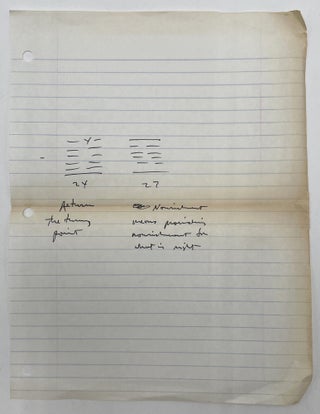 24 27
Return Nourishment
the turning means providing
point nourishment for
what is right